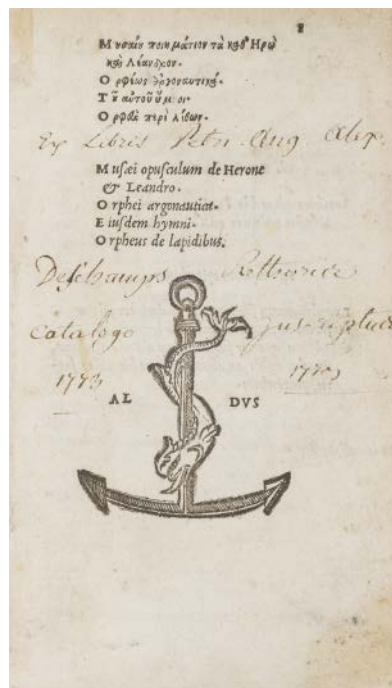 Μουσαίου ποιημάτιον τὰ καθ' Ἡρὼ
καὶ Λέανδρον.
Ὀρφέως ἀργοναυτικά.
Τοῦ αὐτοῦ ὕμνοι.
Ὀρφεὺς περὶ λίθων.
Ex Libris Petri Aug. Alex.
Musæi opusculum de Herone
& Leandro.
Orphei argonautica.
Eiusdem hymni.
Orpheus de lapidibus.
Deschamps Rethorice
Catalogo
1773
AL DVS